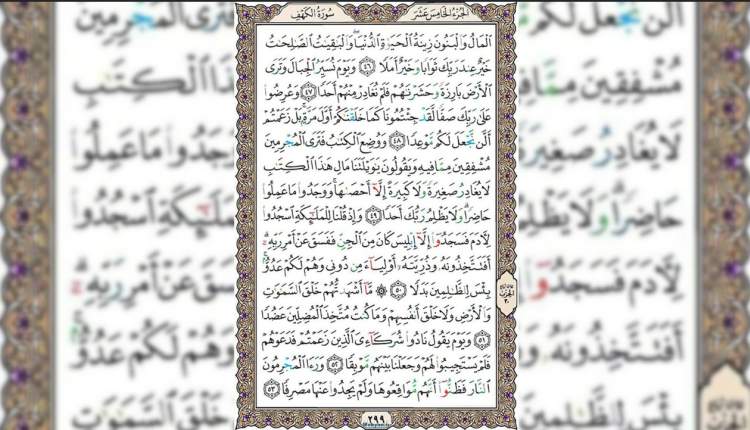 الجزء الخامس عشر
سورة الكهف
ٱلْمَالُ وَٱلْبَنُونَ زِينَةُ ٱلْحَيَوٰةِ ٱلدُّنْيَا ۖ وَٱلْبَٰقِيَٰتُ ٱلصَّٰلِحَٰتُ
خَيْرٌ عِندَ رَبِّكَ ثَوَابًا وَخَيْرٌ أَمَلًا ٤٦ وَيَوْمَ نُسَيِّرُ ٱلْجِبَالَ وَتَرَى
ٱلْأَرْضَ بَارِزَةً وَحَشَرْنَٰهُمْ فَلَمْ نُغَادِرْ مِنْهُمْ أَحَدًا ٤٧ وَعُرِضُوا۟
عَلَىٰ رَبِّكَ صَفًّا لَّقَدْ جِئْتُمُونَا كَمَا خَلَقْنَٰكُمْ أَوَّلَ مَرَّةٍۭ ۚ بَلْ زَعَمْتُمْ
أَلَّن نَّجْعَلَ لَكُم مَّوْعِدًا ٤٨ وَوُضِعَ ٱلْكِتَٰبُ فَتَرَى ٱلْمُجْرِمِينَ
مُشْفِقِينَ مِمَّا فِيهِ وَيَقُولُونَ يَٰوَيْلَتَنَا مَالِ هَٰذَا ٱلْكِتَٰبِ
لَا يُغَادِرُ صَغِيرَةً وَلَا كَبِيرَةً إِلَّآ أَحْصَىٰهَا ۚ وَوَجَدُوا۟ مَا عَمِلُوا۟
حَاضِرًا ۗ وَلَا يَظْلِمُ رَبُّكَ أَحَدًا ٤٩ وَإِذْ قُلْنَا لِلْمَلَٰٓئِكَةِ ٱسْجُدُوا۟
لِءَادَمَ فَسَجَدُوٓا۟ إِلَّآ إِبْلِيسَ كَانَ مِنَ ٱلْجِنِّ فَفَسَقَ عَنْ أَمْرِ رَبِّهِۦٓ ۗ
أَفَتَتَّخِذُونَهُۥ وَذُرِّيَّتَهُۥٓ أَوْلِيَآءَ مِن دُونِى وَهُمْ لَكُمْ عَدُوٌّۢ ۚ
بِئْسَ لِلظَّٰلِمِينَ بَدَلًا ٥٠ ۞ مَّآ أَشْهَدتُّهُمْ خَلْقَ ٱلسَّمَٰوَٰتِ
وَٱلْأَرْضِ وَلَا خَلْقَ أَنفُسِهِمْ وَمَا كُنتُ مُتَّخِذَ ٱلْمُضِلِّينَ عَضُدًا
٥١ وَيَوْمَ يَقُولُ نَادُوا۟ شُرَكَآءِىَ ٱلَّذِينَ زَعَمْتُمْ فَدَعَوْهُمْ
فَلَمْ يَسْتَجِيبُوا۟ لَهُمْ وَجَعَلْنَا بَيْنَهُم مَّوْبِقًا ٥٢ وَرَءَا ٱلْمُجْرِمُونَ
ٱلنَّارَ فَظَنُّوٓا۟ أَنَّهُم مُّوَاقِعُوهَا وَلَمْ يَجِدُوا۟ عَنْهَا مَصْرِفًا ٥٣
الحزب
٣٠
٢٩٩